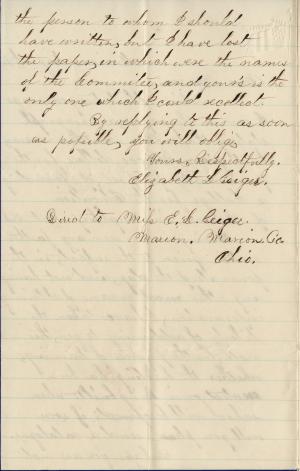 the person to whom I should
have written, but I have lost
the paper, in which were the names
of the Committee, and yours is the
only one which I could recollect.
By replying to this as soon
as possible, you will oblige,
Yours, Respectfully,
Elizabeth S. Geiger.
Direct to Miss E. S. Geiger
Marion, Marion Co.
Ohio.